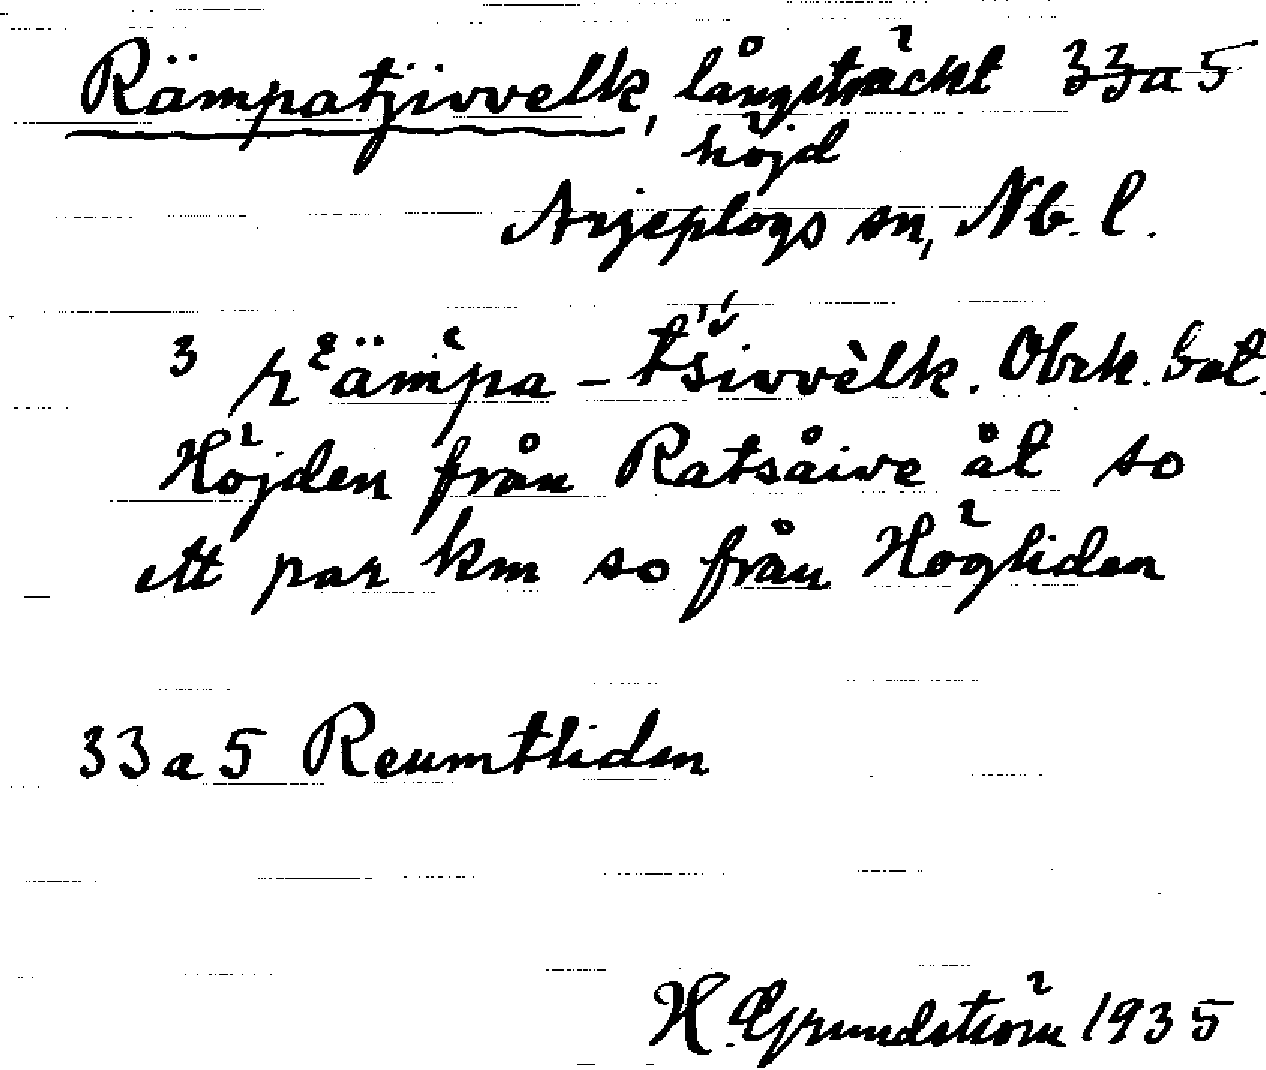 Rämpatjivvelk, långsträckt 33a5
höjd
Arjeplogs sn, Nb. l.
3 rämpa - tsivvèlk. Obrk. bet.
Höjden från Ratsåive åt so
ett par km so från Högliden
33a5 Reumtliden
H. Grundström 1935